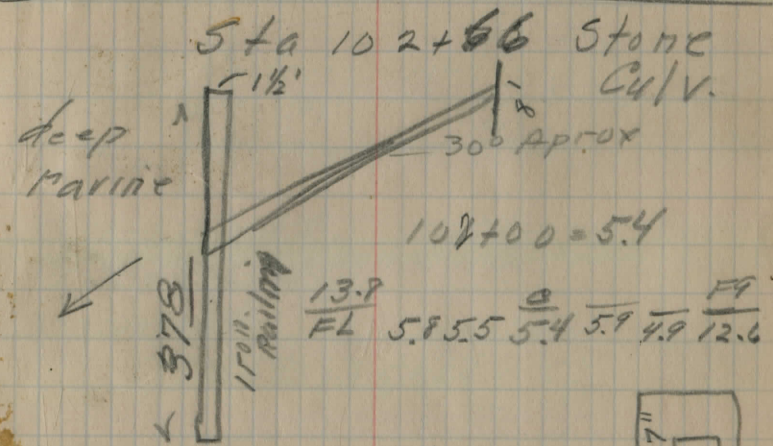 Sta 102+66 Stone
Culv.
1½'
8'
deep
ravine
30° Aprox
102+00 = 5.4
378
Iron
Railing
13.8 0 F9
FL 5.8 5.5 5.4 5.9 4.9 12.6
7"